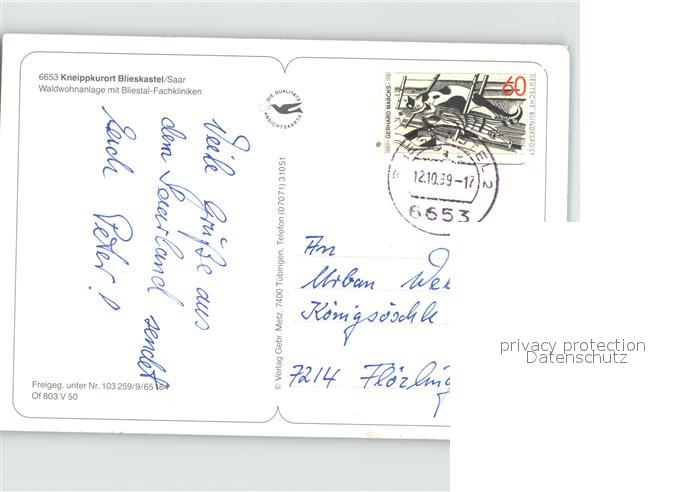 6653 Kneippkurort Blieskastel/Saar
Waldwohnanlage mit Bliestal-Fachkliniken
DIE QUALITÄTS
ANSICHTSKARTE
Viele Grüße aus
dem Saarland sendet
Euch Peter!
Freigeg. unter Nr. 103 259/9/65 184
Of 803 V 50
© Verlag Gebr. Metz, 7400 Tübingen, Telefon (07071) 31051
60
DEUTSCHE BUNDESPOST
GERHARD MARCKS
12.10.89-17
2
6653
An
Urban
Königsöschle
7214
privacy protection
Datenschutz